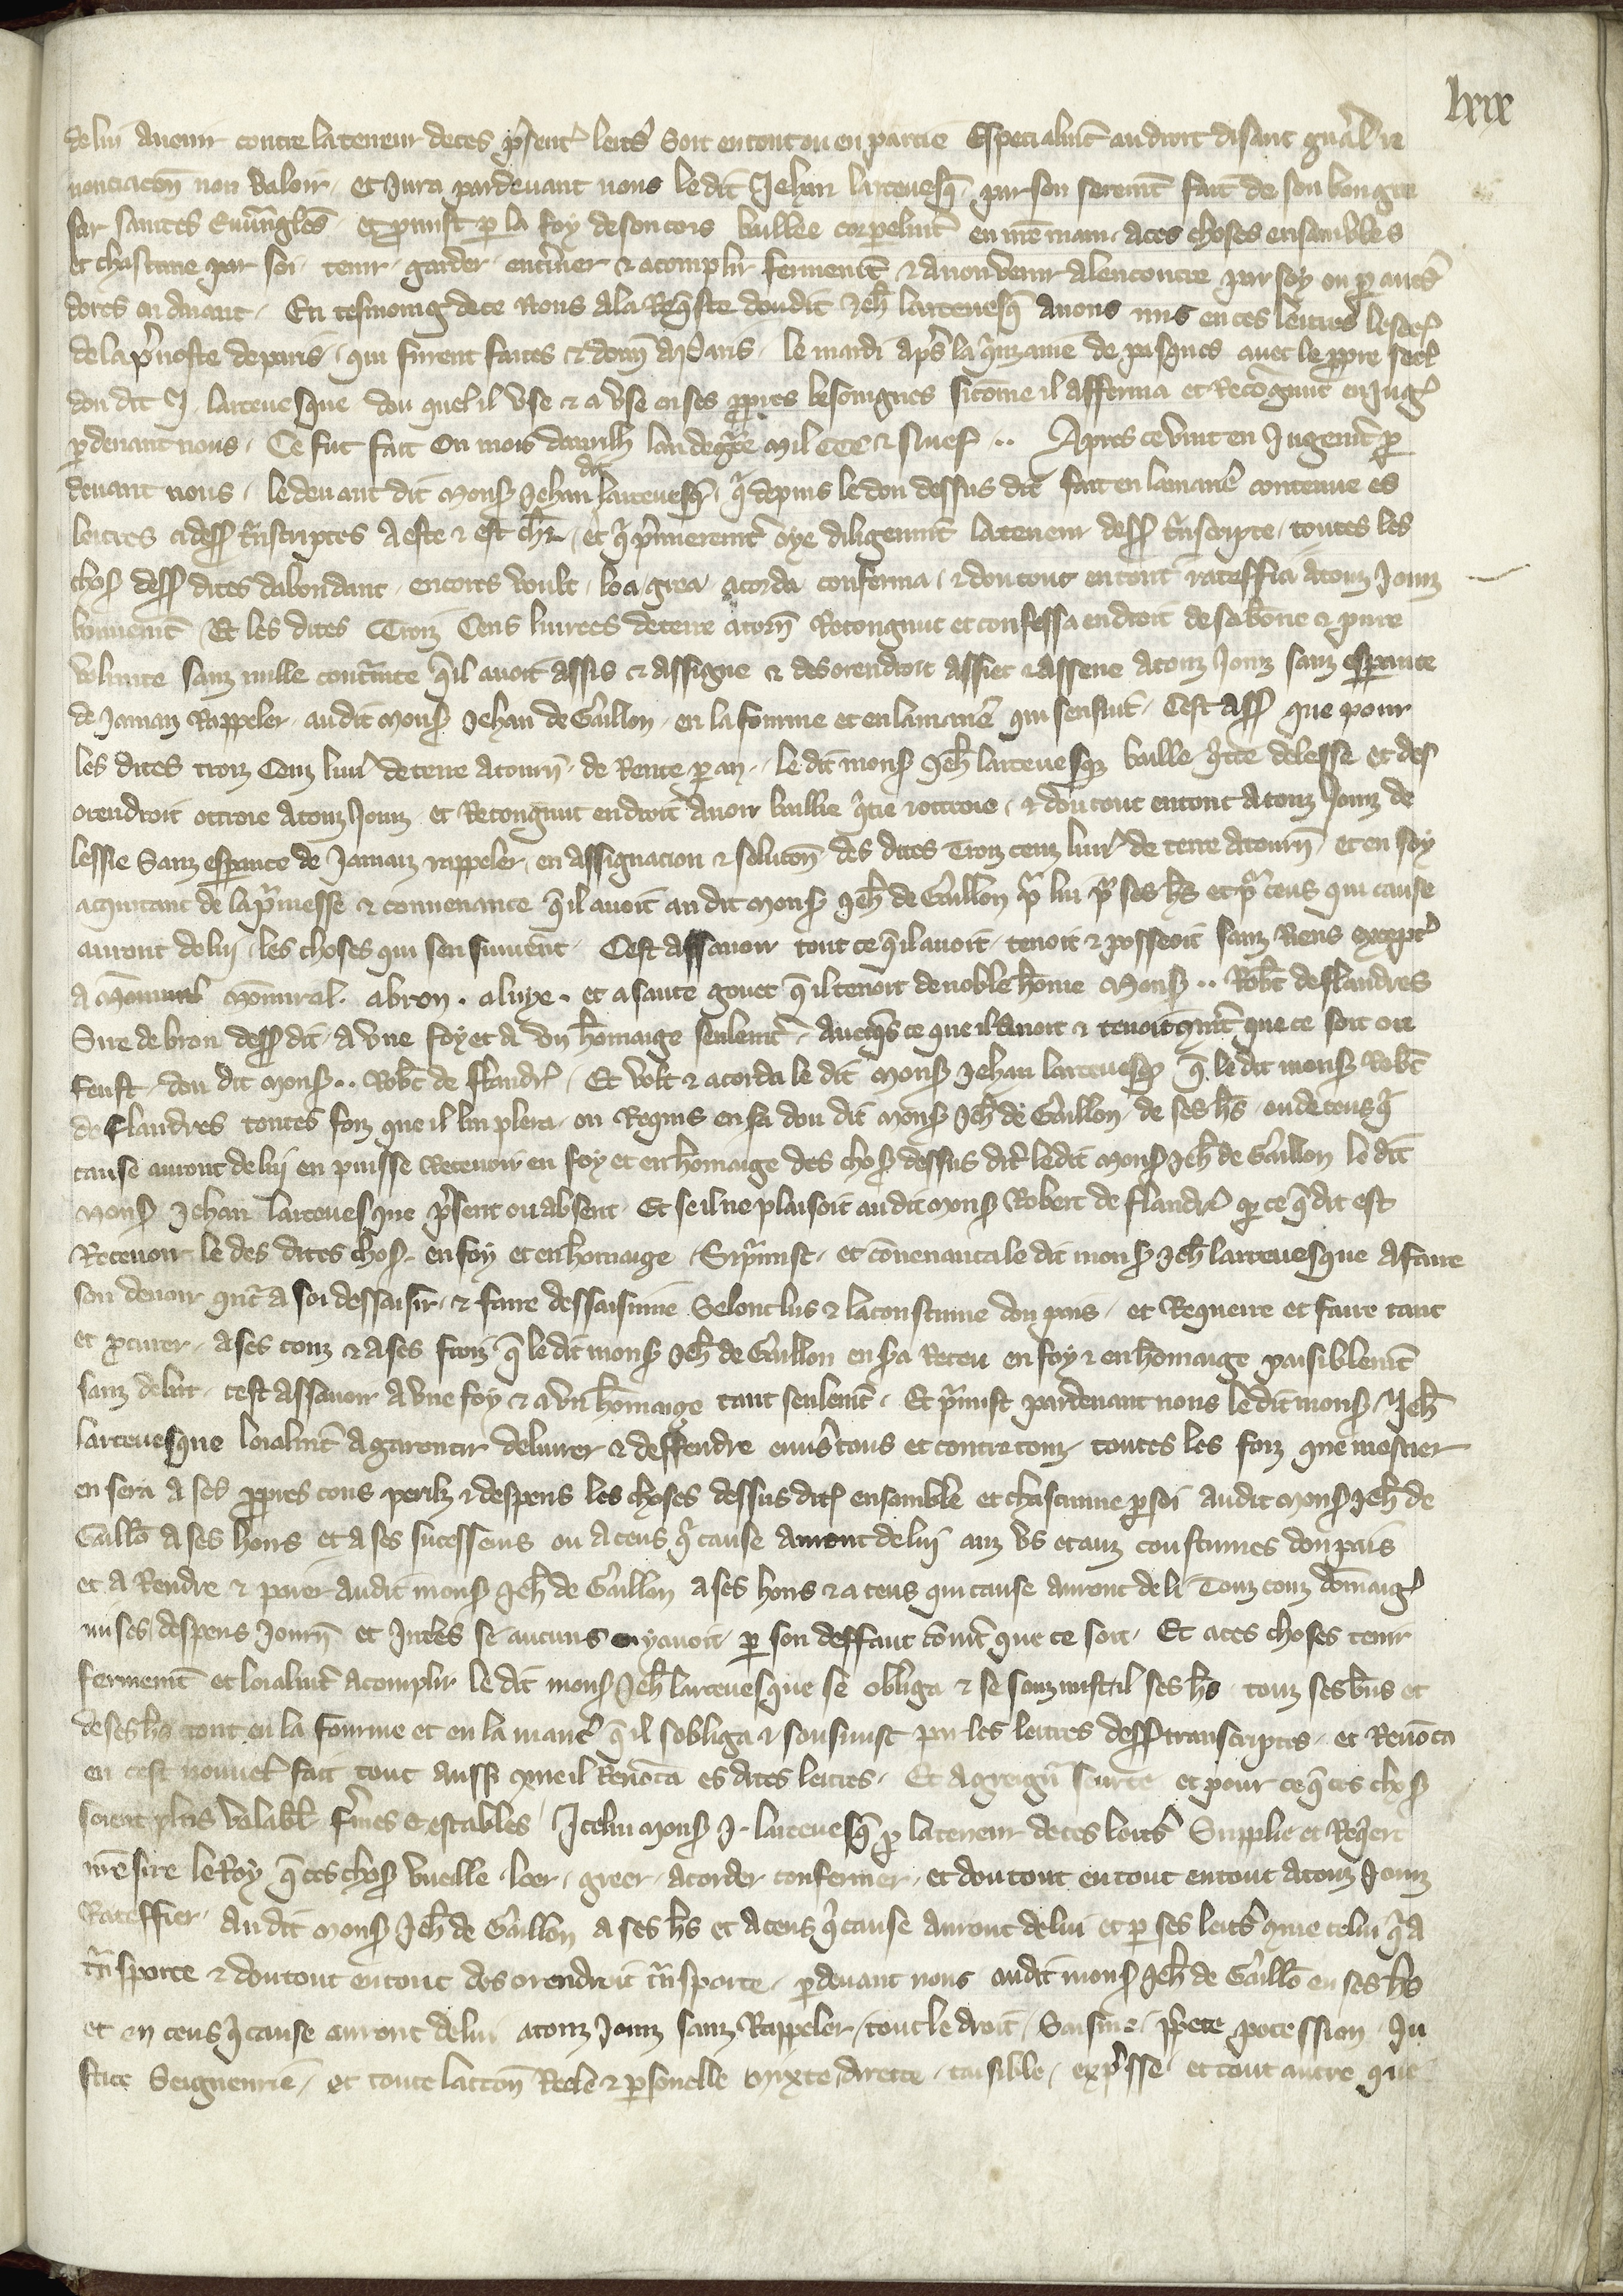 lxix
de lui auenir contre la teneur de ces p̃sentes lettr̃ soit en tout ou en partie Especialmt̃ au droit disant gñal re
nonciacõn non valoir. et Jura pardeuant nous le dit Jehan larceuesq̃ par son seremt̃ fait de son bon gre
sar saintes Euuãngles et p̃mist p la foy de son cors baillee corpelmt̃ en nr̃e main. a ces choses ensambles
et chascune par soi tenir. garder. entẽriner & acomplir fermemt̃ & a non venir a lencontre par soy ou p autr̃
dores en auant. En tesmoing de ce Nous a la Req̃ste dou dit Jeh̃ larceuesq̃ auons mis en ces lettres le seel
de la p̃uoste de paris. qui furent faites & donn̄ a paris le mardi ap̃s la q̃nzaine de pasques auec le ppre seel
dou dit J. larceuesque dou quel il vse & a vse en ses pp̃res besoingnes si cõme il afferma et Recognut en Jug̃
pdeuant nous. Ce fut fait Ou mois dauril lan de grãce Mil ccc & Nuef .. Apres ce vint en Jugemt̃ p
deuant nous. le deuant dit Mons̃ Jehan larceuesq̃. q̃ depuis le don dessus dit fait en la manie contenue es
lettres ci dess̃ t̃nscriptes a este & est ch̃r. et q̃ p̃mieremt̃ oye diligemmt̃ la teneur dess̃ t̃nscripte. toutes les
chos̃ dess̃ dites dabondant. encores voult. loa. grea acorda conferma. & dou tout en tout rateffia a touz Jourz
bonnemt̃ Et les dites Troiz Cens liurees de terre a torn̄ Recongnut et confessa en droit de sa bonne & pure
volente sanz nulle cont̃inte q̃il auoit assis & assigne & des orendroit assiet & assene a touz Jourz sanz esperance
de Jamaiz Rappeler. au dit Mons̃ Jehan de Gaillon. en la fourme et en la manie qui sensiut. Cest ass̃ que pour
les dites troiz Cenz liur̃ de terre a tourn̄. de Rente p an. le dit mons̃ Jeh̃ larceuesq̃ baille q̃tte delesse et des
orendroit ottroie a touz Jourz et Recongnut en droit auoir baillie q̃tie & ottroie. & dou tout en tout a touz Jourz de
lessie Sanz esperance de Jamaiz rappeler. en assignacion & solucõn des dites Troiz cenz liur̃ de terre a tourn̄. et en soy
acquitant de la p̃messe & conuenance q̃il auoit au dit Mons̃ Jeh̃ de Gaillon p̃ lui p̃ ses h̃s et p̃ ceus qui cause
auront de lui. les choses qui sen siuuent. Cest assauoir tout ce q̃il auoit. tenoit & possoit sanz Riens except̃
a Mommiral. abron. aluye. et a sante gouet q̃ il tenoit de noble hõme Mons̃ .. Rob̃t de flandres
Sire de bron dess̃ dit. a vne foy et a vn hõmaige seulemt̃. auecq̃s ce que il auoit & tenoit q̃mt̃ que ce soit ou
feust. dou dit Mons̃ .. Rob̃t de flandr̃. Et volt & acorda le dit Mons̃ Jehan larceuesq̃ q̃ le dit mons̃ Rob̃t
de flandres toutes foiz que il lui plera. ou Requis en sera dou dit Mons̃ Jeh̃ de Gaillon. de ses h̃s. ou de ceus q̃
cause auront de lui en puisse Receuoir en foy et en hõmaige des chos̃ dessus dit̃ le dit Mons̃ Jeh̃ de Gaillon le dit
Mons̃ Jehan larceuesque p̃sent ou absent. Et se il ne plaisoit au dit Mons̃ Robert de flandr̃ p ce q̃ dit est
Receuoir le des dites chos̃. en foy et en hõmaige Si p̃mist. et cõuenanca le dit mons̃ Jeh̃ larceuesque a faire
son deuoir q̃nt̃ a soi dessaisir. & faire dessaisinne Selonc lus & la coustume dou pais. et Requerre et faire tant
et p̃curer. a ses couz & a ses fraiz q̃ le dit mons̃ Jeh̃ de Gaillon en sera Receu en foy & en hõmaige paisiblemt̃
sanz debat. cest assauoir a vne foy & a vn hõmaige tant seulemt̃. Et p̃mist pardeuant nous le dit mons̃ Jeh̃
larceuesque loialmt̃ a garentir deliurer & deffendre enu̾s tous et contre touz toutes les foiz que mestier
en sera a ses pp̃res cous perilz & despens les choses dessus dit̃ ensamble et chascunne p soi au dit Mons̃ Jeh̃ de
Gaillõ a ses hoirs et a ses sucesseurs ou a ceus q̃ cause auront de lui auz vs et auz coustumes dou pais
et a Rendre & paier au dit mons̃ Jeh̃ de Gaillon a ses hoirs & a ceus qui cause auront de li Touz couz dõmaig̃
mises despens Journ̄ et Int̃es se aucuns en y auoit. p son deffaut cõmt̃ que ce soit. Et a ces choses tenir
fermemt̃ et loialmt̃ acomplir le dit mons̃ Jeh̃ larceuesque se obliga & se sonzmist il ses h̃s touz ses b̃ns et
de ses h̃s tout en la fourme et en la manie q̃ il sobliga & sousmist par les lettres dess̃ transcriptes. et Renõca
en cest nouuel fait tout aussi q̃me il Renõca es dites lettres. Et a greign̄ seurte et pour ce q̃ ces chos̃
soient plus valabl̃ f̃mes & estables Jcelui Mons̃ J. larceuesq̃ p la teneur de ces lettr̃ Supplie et Req̃ert
nr̃e sire le Roy q̃ ces chos̃ vueille. loer. greer. acorder confermer. et dou tout en tout en tout a touz Jourz
Rateffier. au dit Mons̃ Jeh̃ de Gaillon a ses h̃s et a ceus q̃ cause auront de lui et p ses lettr̃ q̃me celui q̃ a
t̃nsporte & dou tout en tout des orendroit t̃nsporte. pdeuant nous au dit mons̃ Jeh̃ de Gaillõ en ses h̃s
et en ceus q̃ cause auront de lui a touz Jourz sanz Rappeler. tout le droit. Saisine. pp̃ete possession Ju
stice Seigneurie. et toute lactõn Reele & p̃sonelle Mixte directe. taisible. exp̃sse et tout autre que